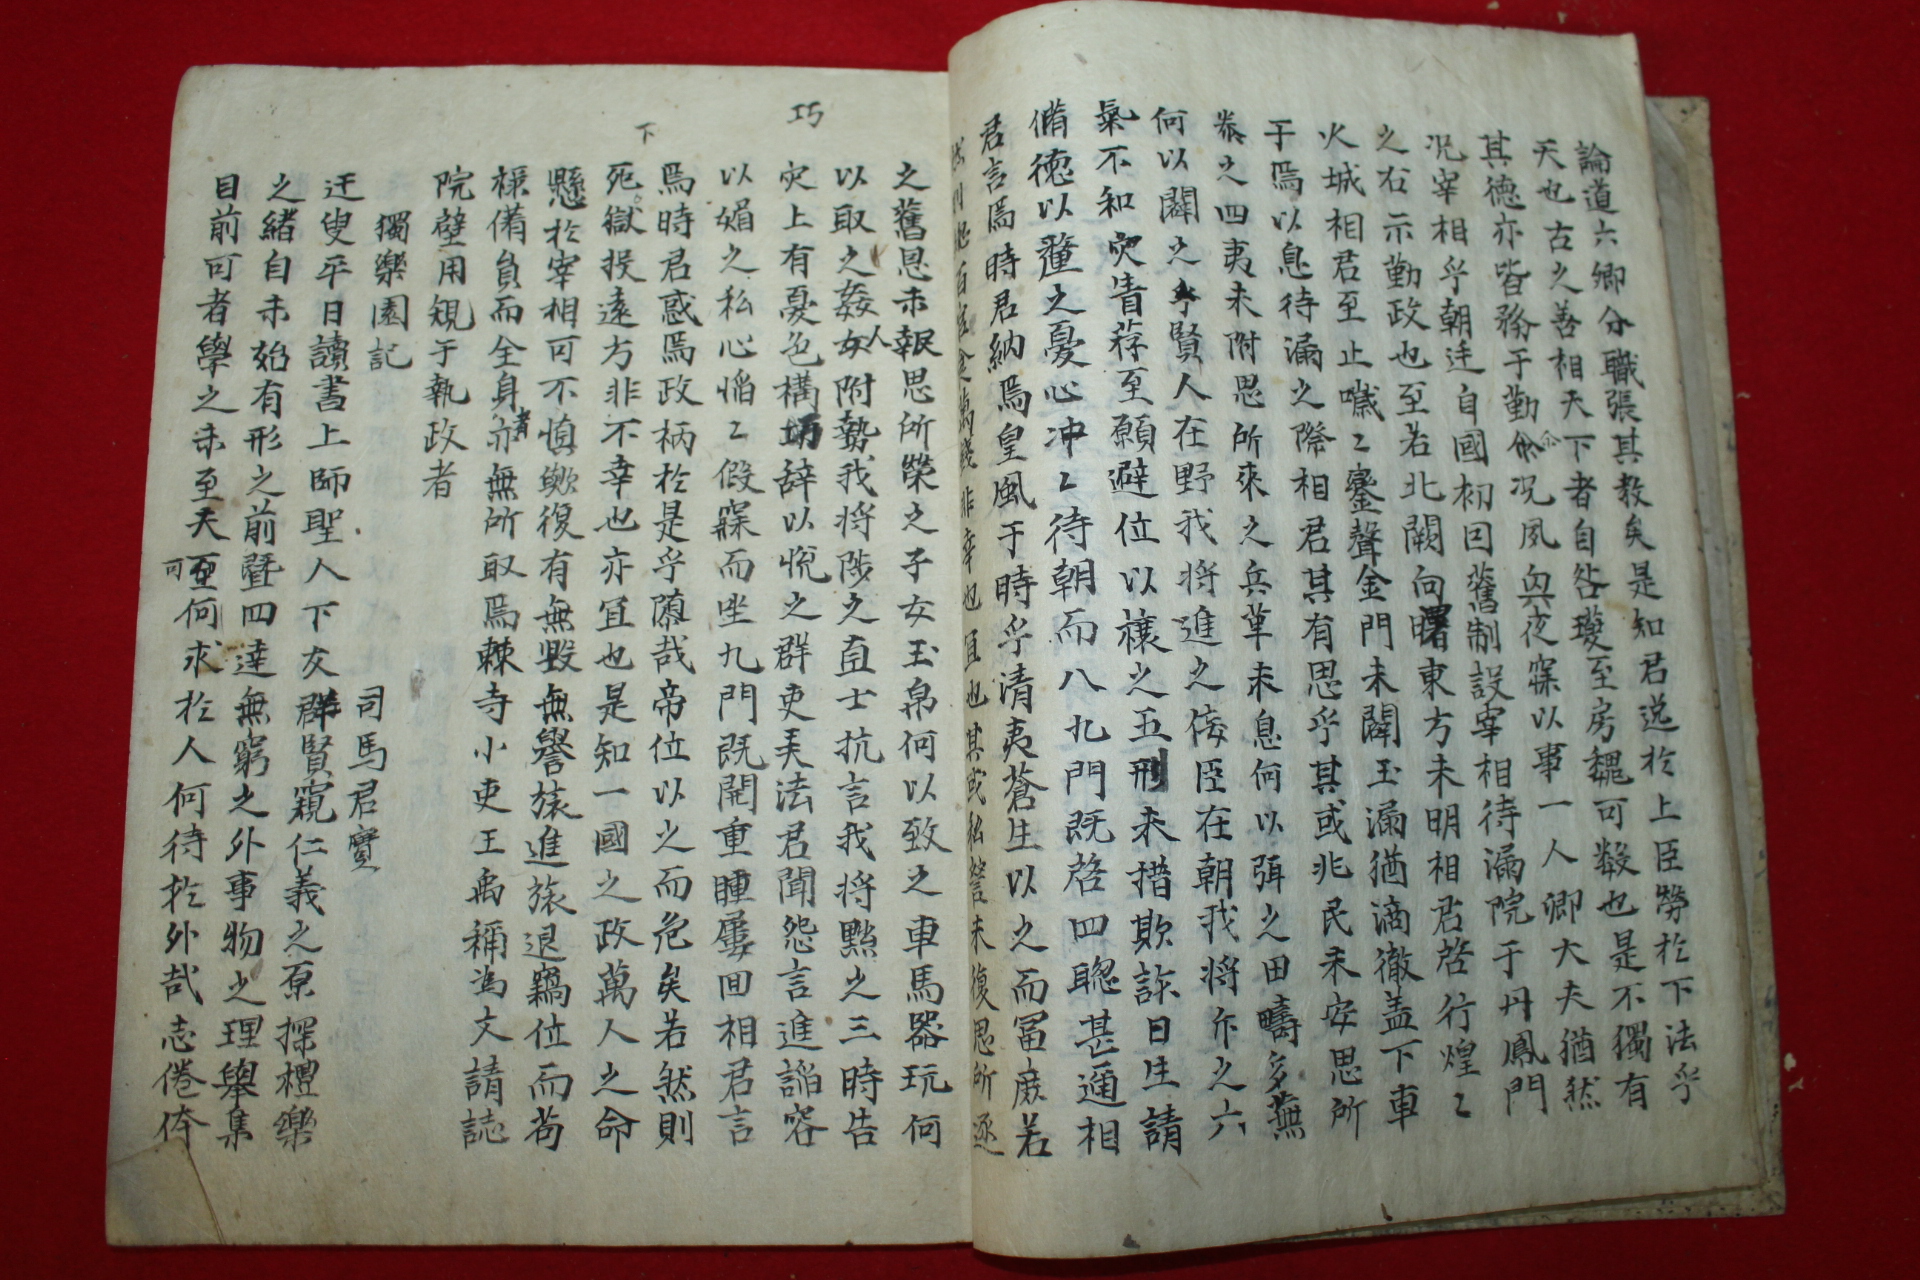 論道六卿分職張其教矣是知君逸於上臣勞於下法乎
天也古之善相天下者自咎夔至房魏可数也是不獨有
其德亦皆務于勤尒况夙興夜寐以事一人卿大夫猶然
况宰相乎朝廷自國初因舊制設宰相待漏院于丹鳳門
之右示勤政也至若北闕向曙東方未明相君啓行煌〻
火城相君至止噦〻鑾聲金門未闢玉漏猶滴徹盖下車
于焉以息待漏之際相君其有思乎其或兆民未安思所
泰之四夷未附思所來之兵革未息何以弭之田疇多蕪
何以闢之乎賢人在野我将進之侫臣在朝我将斥之六
氣不和灾眚荐至願避位以禳之五刑未措欺詐日生請
脩德以釐之憂心冲〻待朝而入九門既啓四聦甚邇相
君言焉時君納焉皇風于時乎清夷蒼生以之而冨庶若
然則總百官食萬錢非幸也宜也其或私讐未復思所逐
之舊恩未報思所榮之子女玉帛何以致之車馬器玩何
以取之姦人附勢我将陟之直士抗言我将黜之三時告
灾上有憂色構巧辞以恱之群吏弄法君聞怨言進謟容
以媚之私心慆〻假寐而坐九門既開重瞳屢回相君言
焉時君惑焉政柄於是乎隳哉帝位以之而危矣若然則
死下獄投遠方非不幸也亦宜也是知一國之政萬人之命
懸於宰相可不慎歟復有無毀無譽旅進旅退竊位而苟
禄備員而全身者亦無所取焉棘寺小吏王禹稱為文請誌
院壁用規于執政者
獨樂園記　司馬君實
迂叟平日讀書上師聖人下友群賢窺仁義之原探禮樂
之緒自未始有形之前曁四達無窮之外事物之理舉集
目前可者學之未至夫可何求於人何待於外哉志倦体